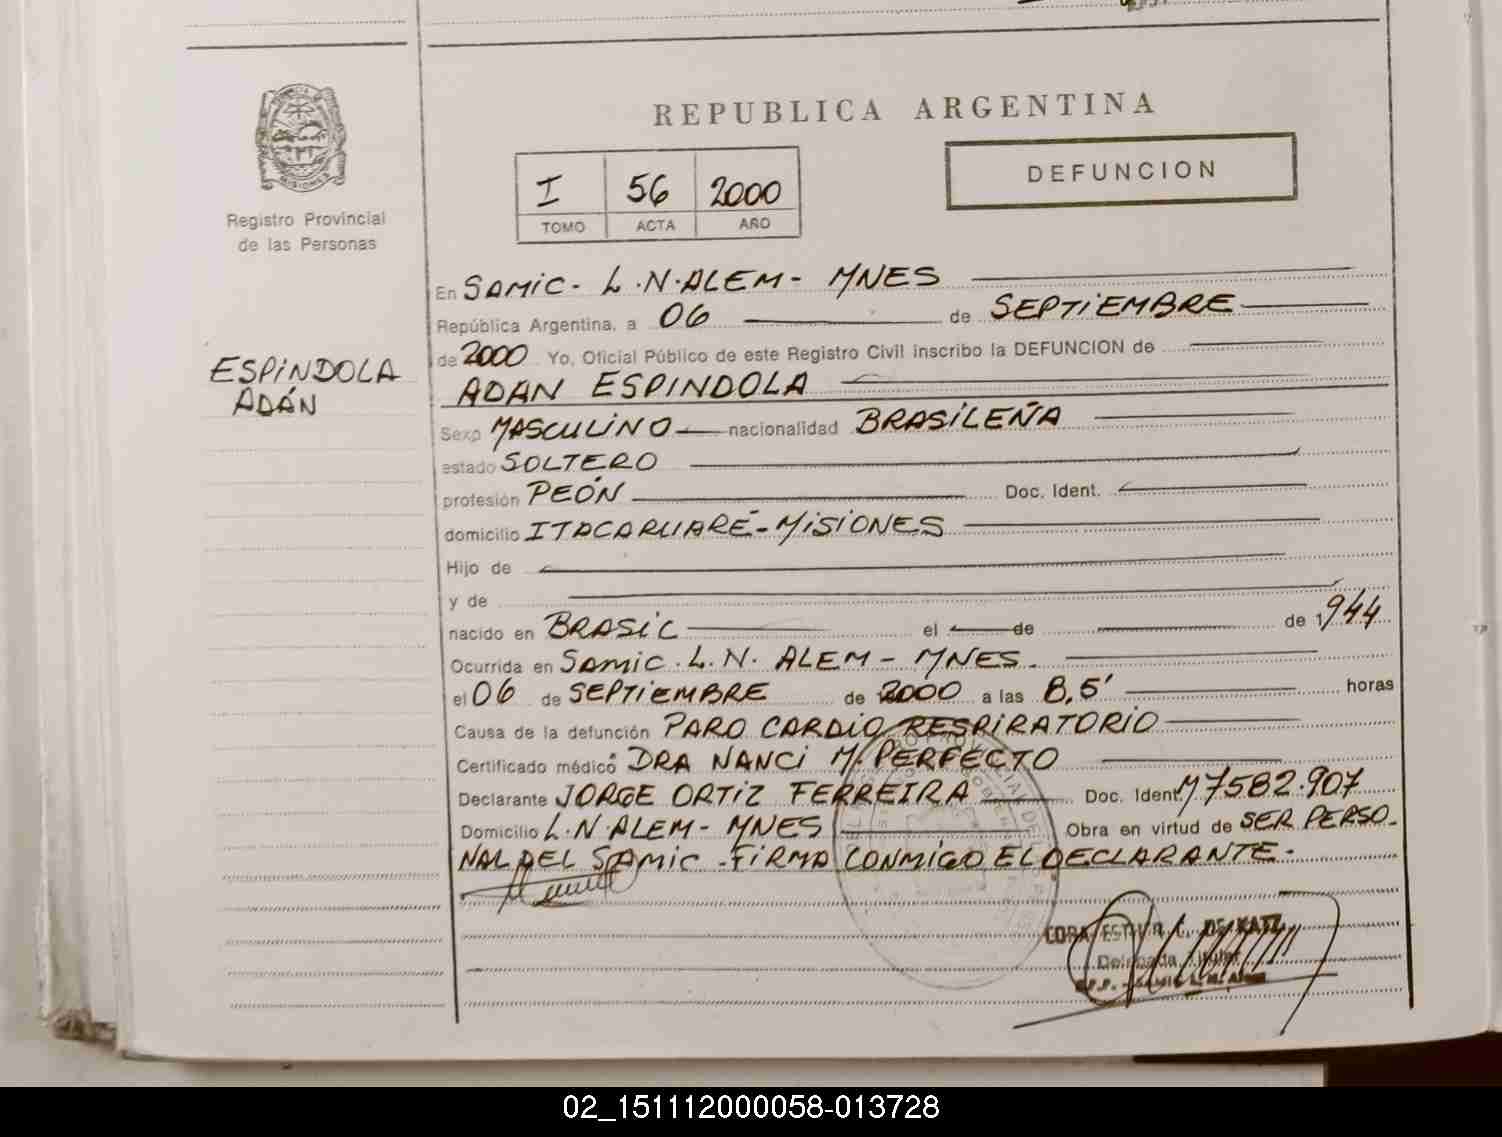 PROVINCIA DE
MISIONES
Registro Provincial
de las Personas
ESPINDOLA
ADÁN
REPUBLICA ARGENTINA
I 56 2000
TOMO ACTA AÑO
DEFUNCION
En SAMIC - L.N. ALEM - MNES
República Argentina, a 06 de SEPTIEMBRE
de 2000 Yo, Oficial Público de este Registro Civil inscribo la DEFUNCION de
ADAN ESPINDOLA
Sexo MASCULINO nacionalidad BRASILEÑA
estado SOLTERO
profesión PEÓN Doc. Ident.
domicilio ITACARUARÉ - MISIONES
Hijo de
y de
nacido en BRASIL el de de 1944
Ocurrida en SAMIC. L.N. ALEM - MNES.
el 06 de SEPTIEMBRE de 2000 a las 8,5' horas
Causa de la defunción PARO CARDIO RESPIRATORIO
Certificado médico DRA NANCI M. PERFECTO
Declarante JORGE ORTIZ FERREIRA Doc. Ident. M7582.907
Domicilio L.N ALEM - MNES Obra en virtud de SER PERSO-
NAL DEL SAMIC - FIRMA CONMIGO EL DECLARANTE.
CORA ESTHER C. DE KATZ
Delegada Titular
02_151112000058-013728